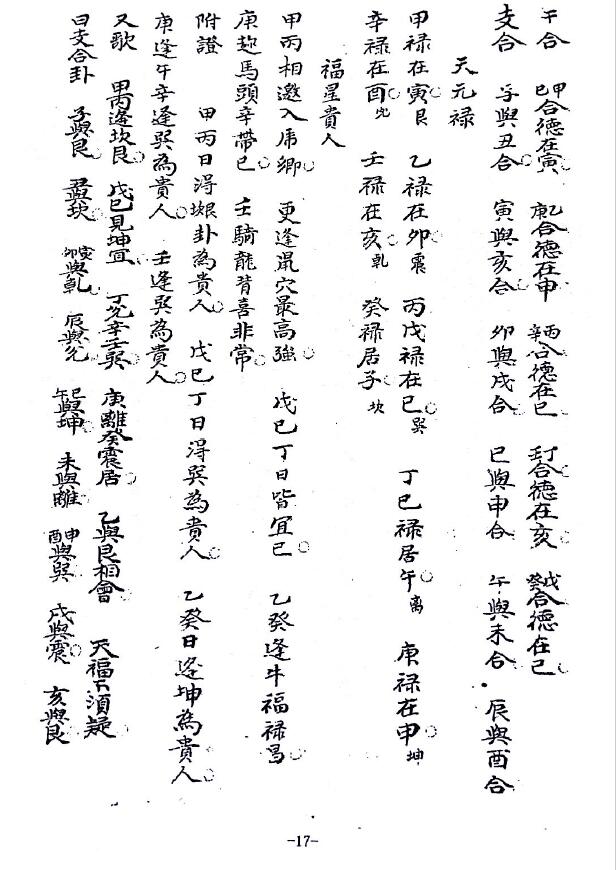 干合 甲己合德在寅 乙庚合德在申 丙辛合德在巳 丁壬合德在亥 戊癸合德在巳
支合 子與丑合 寅與亥合 卯與戌合 巳與申合 午與未合 辰與酉合
天元禄
甲禄在寅艮 乙禄在卯震 丙戊禄在巳巽 丁己禄居午离 庚禄在申坤
辛禄在酉兑 壬禄在亥乾 癸禄居子坎
福星貴人
甲丙相邀入虎鄉 更逢鼠穴最高強 戊己丁日皆宜巳 乙癸逢牛福禄昌
庚趂馬頭辛帶巳 壬騎龍背喜非常
附證 甲丙日得艮卦為貴人 戊己丁日得巽為貴人 乙癸日逢坤為貴人
庚逢午辛逢巽為貴人 壬逢巽為貴人
又歌 甲丙逢坎艮 戊己見坤宜 丁兑辛壬巽 庚離癸震居 乙與艮相會 天福不須疑
曰支合卦 子與艮 丑與坎 寅卯與乾 辰與兑 午巳與坤 未與離 申酉與巽 戌與震 亥與艮
-17-